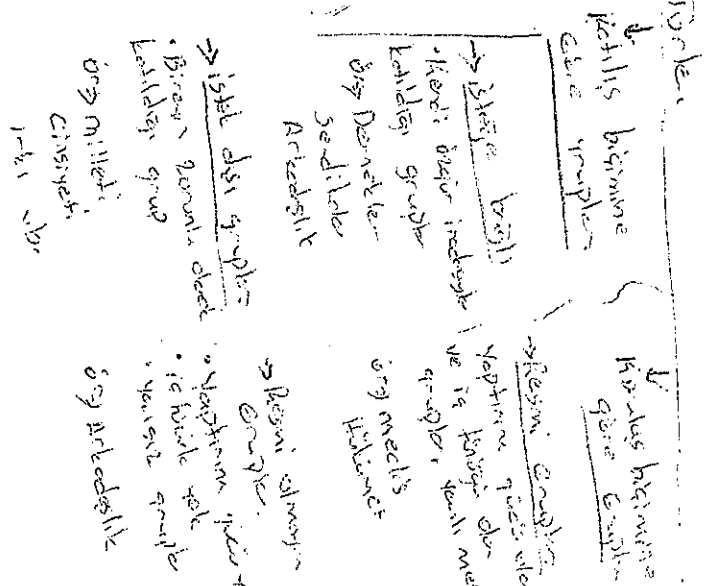 Türleri
↓
Katılış biçimine
göre gruplar
→ isteğe bağlı
• Kendi özgür iradesiyle
katıldığı gruplar
örg Dernekler
Sendikalar
Arkadaşlık
→ istek dışı gruplar
• Bireyin zorunlu olarak
katıldığı grup
örg milleti
cinsiyeti
ırkı vb.
↓
Kuruluş biçimine
göre Gruplar
→ Resmi Gruplar
Yaptırım gücü
ve iç tüzüğü olan
gruplar, yazılı
örg meclis
Hükümet
→ Resmi olmayan
Gruplar.
• Yaptırım gücü
• iç tüzük yok
• yazısız gruplar
örg Arkadaşlık